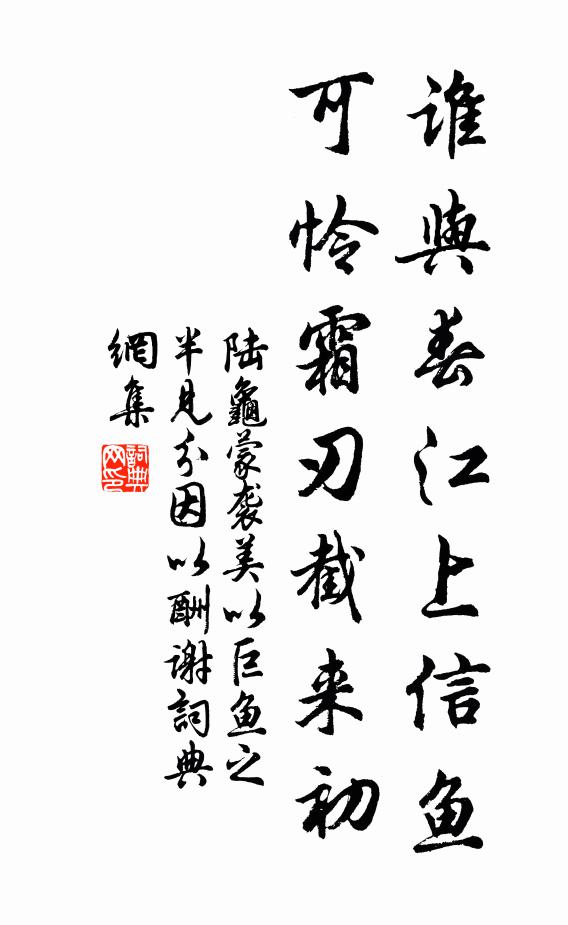 谁與春江上信鱼
可怜霜刃截来初
陆龜蒙袭美以巨鱼之
半见分因以酬谢詞典
網集
詞典
网印